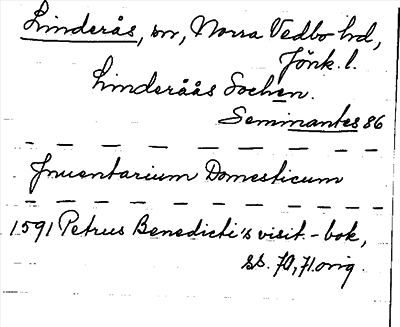 Linderås, sn, Norra Vedbo hd,
Jönk. l.
Linderåås Sochen.
Seminantes 86
Inuentarium Domesticum
1591 Petrus Benedicti's visit.-bok,
ss. 70, 71 orig.